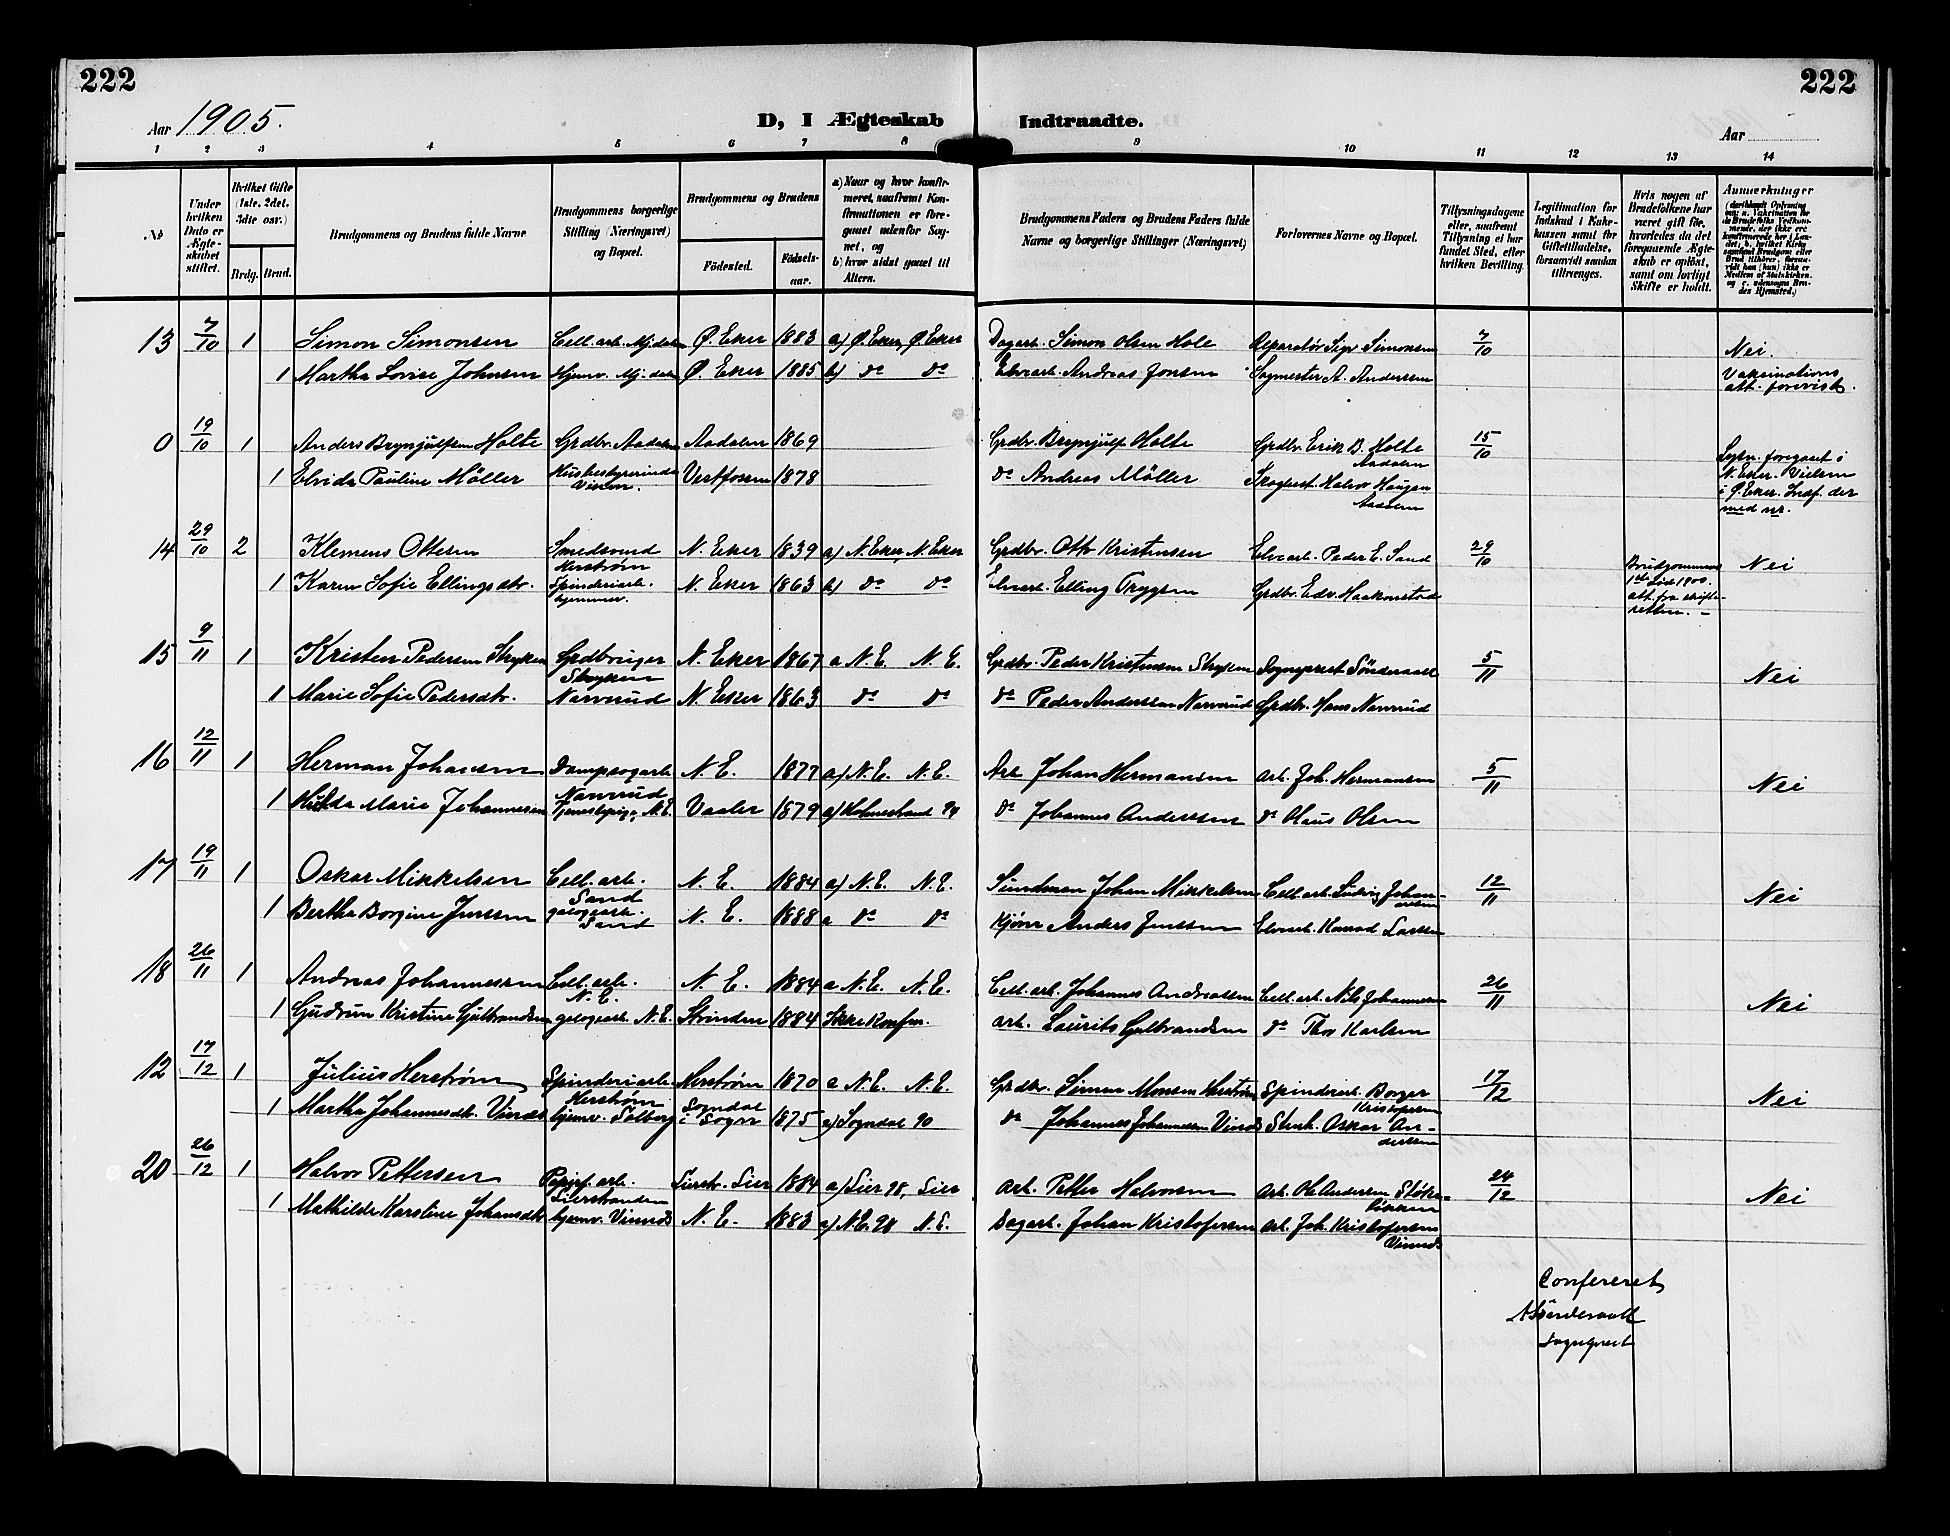 222
222
Aar 1905.
D, I Ægteskab Indtraadte.
Aar
1 2 3 4 5 6 7 8 9 10 11 12 13 14
№
Under hvilken Dato er Ægteskabet stiftet.
Hvilket Gifte (1ste, 2det, 3dte osv.)
Brdg. Brud.
Brudgommens og Brudens fulde Navne
Brudgommens borgerlige Stilling (Næringsvei) og Bopæl.
Brudgommens og Brudens
Fødested.
Fødselsaar.
a) Naar og hvor konfirmeret, saafremt Konfirmationen er foregaaet udenfor Sognet, og
b) hvor sidst gaaet til Alters.
Brudgommens Faders og Brudens Faders fulde Navne og borgerlige Stillinger (Næringsvei)
Forlovernes Navne og Bopæl.
Tillysningsdagene eller, saafremt Tillysning ei har fundet Sted, efter hvilken Bevilling.
Legitimation for Indskud i Enkekassen samt for Giftetilladelse, forsaavidt saadan tiltrænges.
Hvis nogen af Brudefolkene har været gift før, hvorledes da det foregaaende Ægteskab er opløst, samt om lovligt Skifte er holdt.
Anmærkninger
13 7/10 1 Simon Simonsen Cell.arb. Mjdalen Ø. Eker 1883 a) Ø. Eker, Ø. Eker Dagarb. Simon Olsen Hole Reparatør Sigv Simonsen 7/10 Nei.
1 Martha Lovise Johnsen Hjemv. Mjdalen Ø. Eker 1885 b) do do Elvearb. Andreas Jonsen Sagmester A. Anderssen Vaksinations att. forevist.
0 19/10 1 Anders Brynjulfsen Holte Grdbr. Aadalen Aadalen 1869 Grdbr. Brynjulf Holte Grdbr. Erik B. Holte Aadalen 15/10
1 Elvida Pauline Möller Husbestyrerinde Vestfossen 1878 do Andreas Möller Skogbest. Halvor Haugen Aadalen
Lysn. foregaaet i N. Eker. Vielsen i Ø. Eker. Indf. der med nr.
14 29/10 2 Klemens Ottesen Smedsvend Herstrøm N. Eker 1839 a) N. Eker, N. Eker Grdbr. Otto Kristensen Elvearb. Peder E. Sand 29/10 Nei
1 Karen Sofie Ellingsdtr. Spinderiarb. hjemmev. N. Eker 1863 b) do do Elvearb. Elling Trygsen Grdbr. Edv. Haakonstad
Brudgommens 1ste død 1900. att. fra skifteretten. —
15 9/11 1 Kristen Pedersen Stryken Grdbruger Stryken N. Eker 1867 a N.E. N.E. Grdbr. Peder Kristensen Stryken Sogneprest Sönderaal 5/11 Nei
1 Marie Sofie Pedersdtr. Narverud N. Eker 1863 do do do Peder Anderssen Narverud Grdbr. Hans Narverud
16 12/11 1 Herman Johansen Dampsagarb. Narverud N.E. 1877 a) N.E. N.E. Arb. Johan Hermansen arb. Joh. Hermansen 5/11 Nei
1 Hulda Marie Johannesen Tjenestepige, N.E. Vaaler 1879 a) Holmestrand 94 do Johannes Anderssen do Olaus Olsen
17 19/11 1 Oskar Mikkelsen Cell. arb. Sand N.E. 1884 a) N.E. N.E. Sundman Johan Mikkelsen Cell.arb. Ludvig Johanssen 12/11 Nei
1 Bertha Borgine Jenssen Sand N.E. 1888 a do do Kjører Anders Jenssen Elvearb. Konrad Larsen
18 26/11 1 Andreas Johannessen Cell. arb. N.E. N.E. 1884 a N.E. N.E. Cell. arb. Johannes Andreassen Cell. arb. Nils Johannesen 26/11 Nei
1 Gudrun Kristine Gulbrandsen N.E. Strinden 1884 Ikke konfm. arb. Laurits Gulbrandsen do Thor Karlsen
12 17/12 1 Julius Herstrøm Spinderiarb. Herstrøm Herstrøm 1870 a N.E. N.E. Grdbr. Simen Monsen Herstrøm Spinderiarb. Borger Kristofersen 17/12 Nei
1 Martha Johannesdtr. Vinds hjemv. Solberg Sogndal i Sogn 1875 a) Sogndal 90 do Johannes Johannessen Vinds Oskar Anderssen
20 26/12 1 Halvor Pettersen Papirf. arb. Lierstranden Lierstr. Lier 1884 a) Lier 98, Lier arb. Petter Halvorsen arb. Ole Andersen 24/12 Nei
1 Mathilde Karoline Johansdtr. hjemv. N.E. 1883 a) N.E. 98 N.E. Dagarb. Johan Kristofersen arb. Joh. Kristofersen
Confereret
Sogneprest